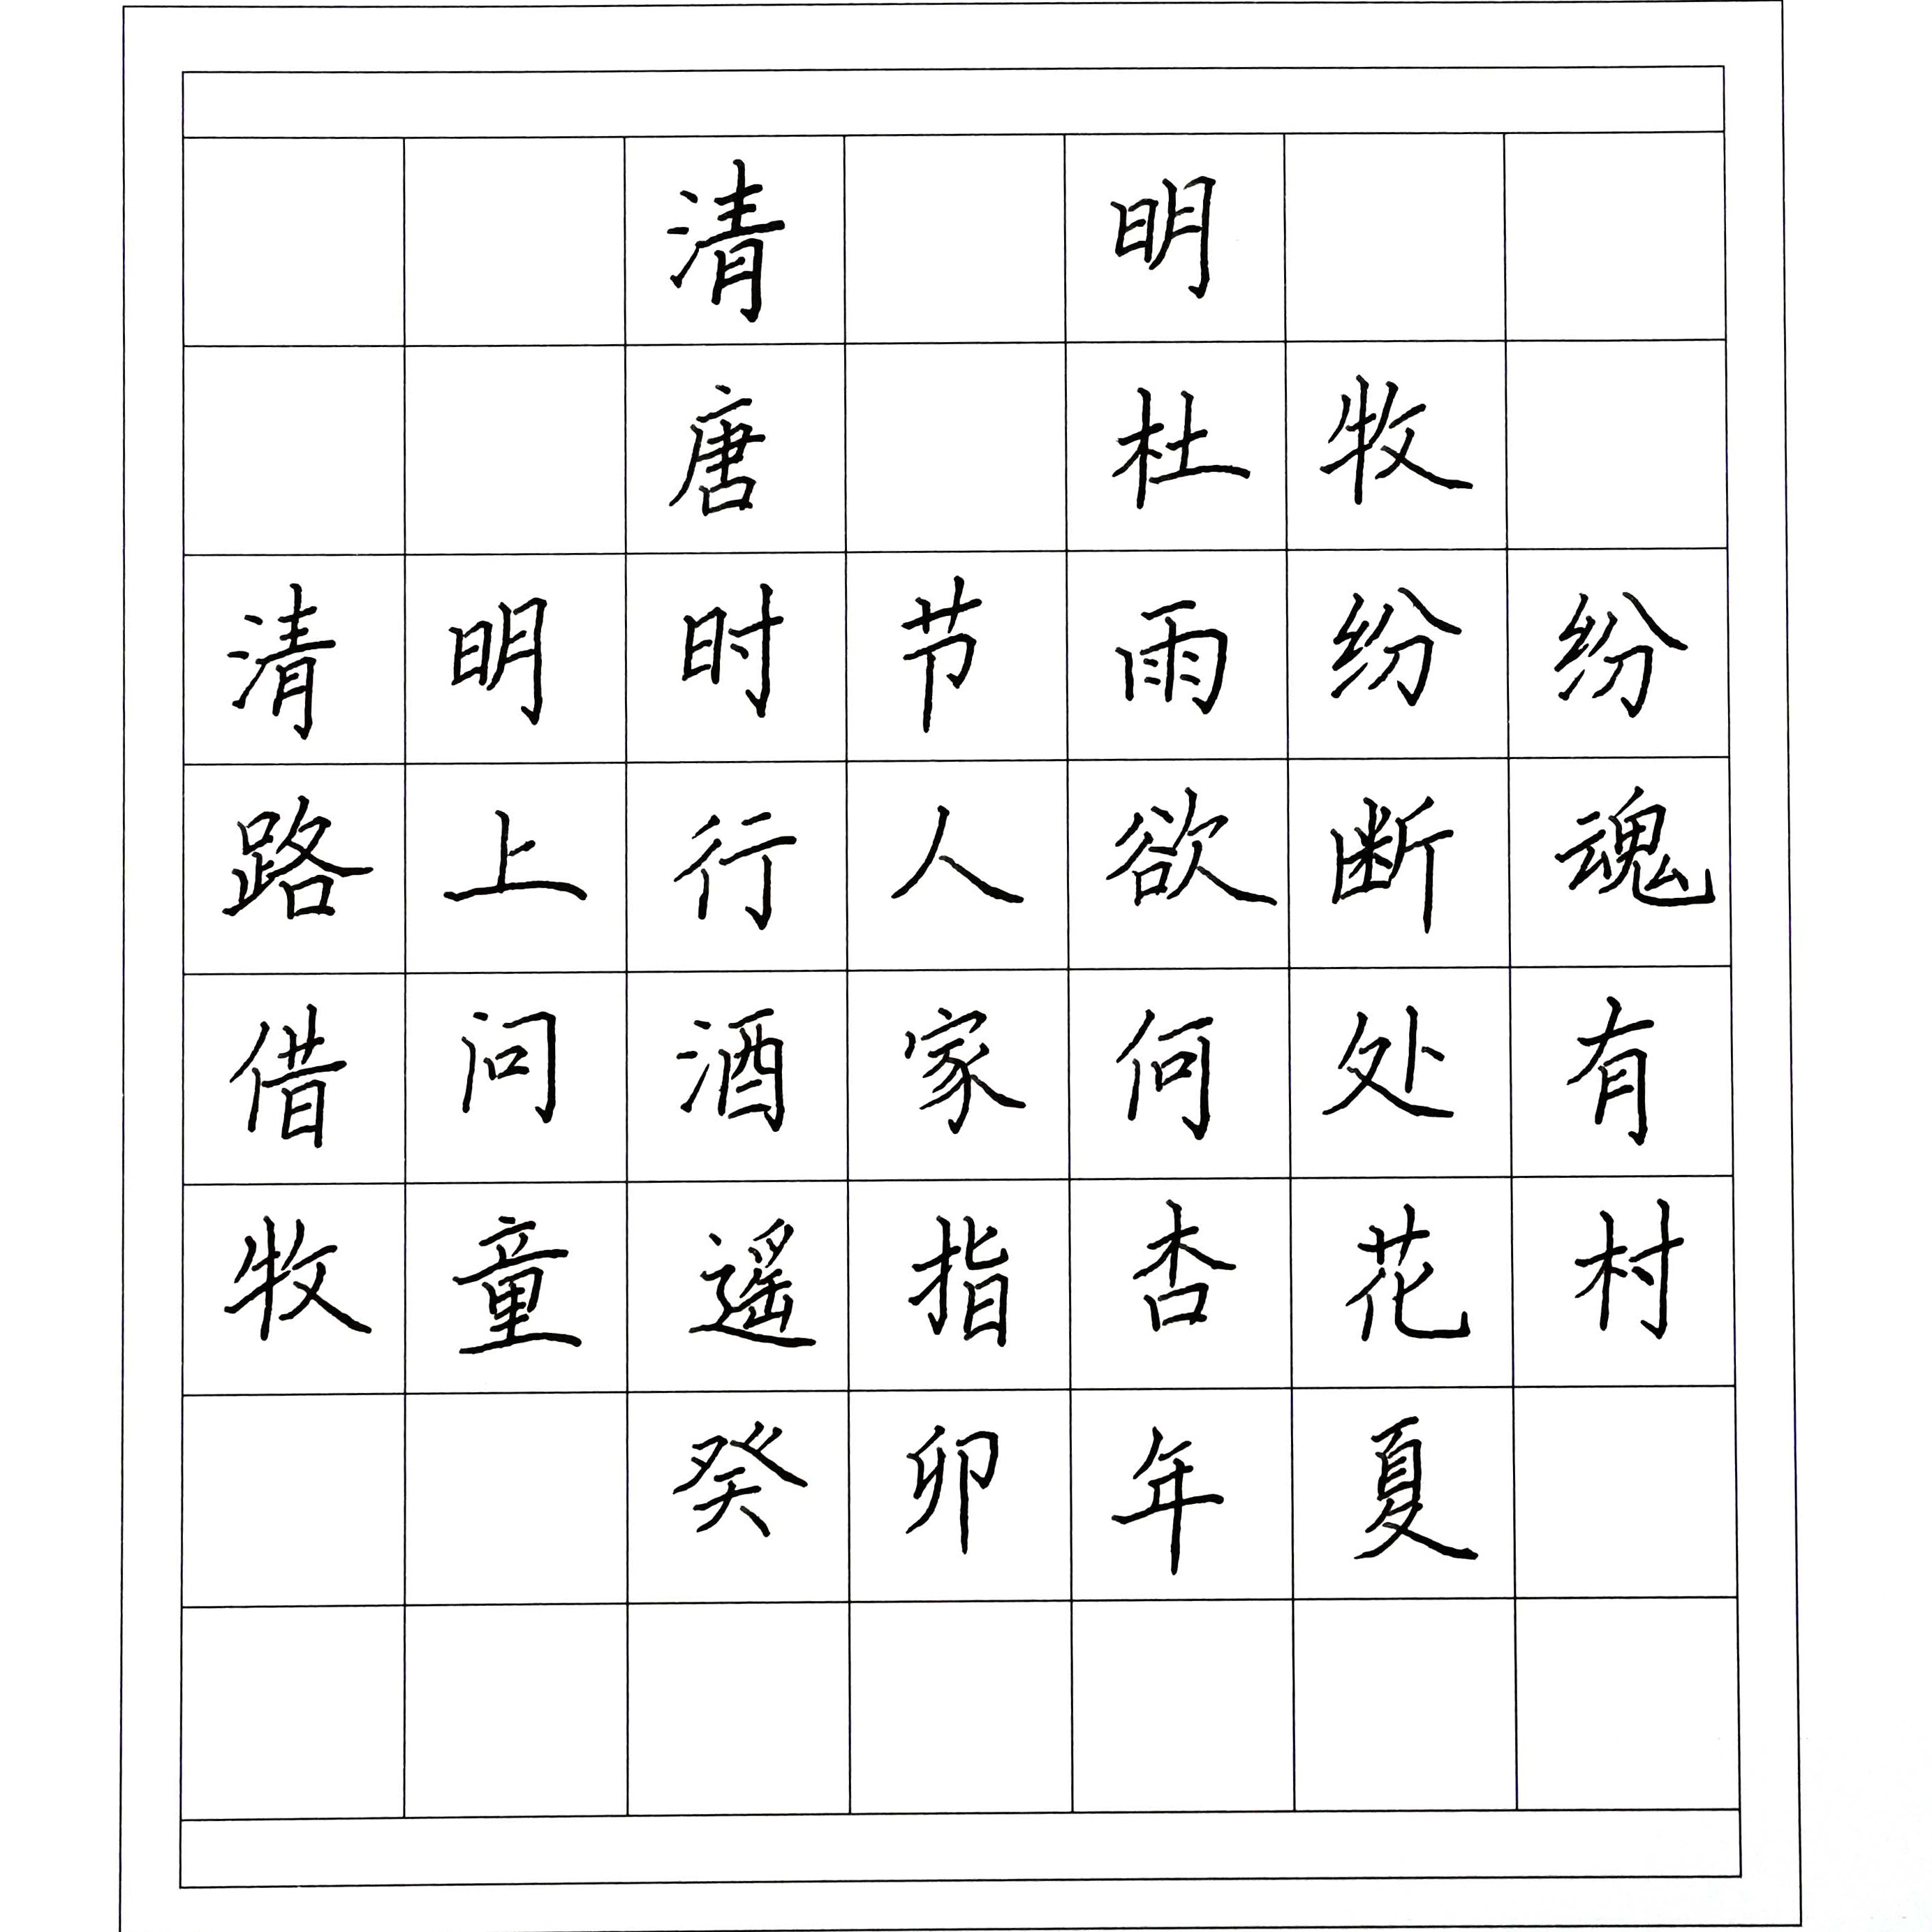 清明
唐 杜牧
清明时节雨纷纷
路上行人欲断魂
借问酒家何处有
牧童遥指杏花村
癸卯年夏